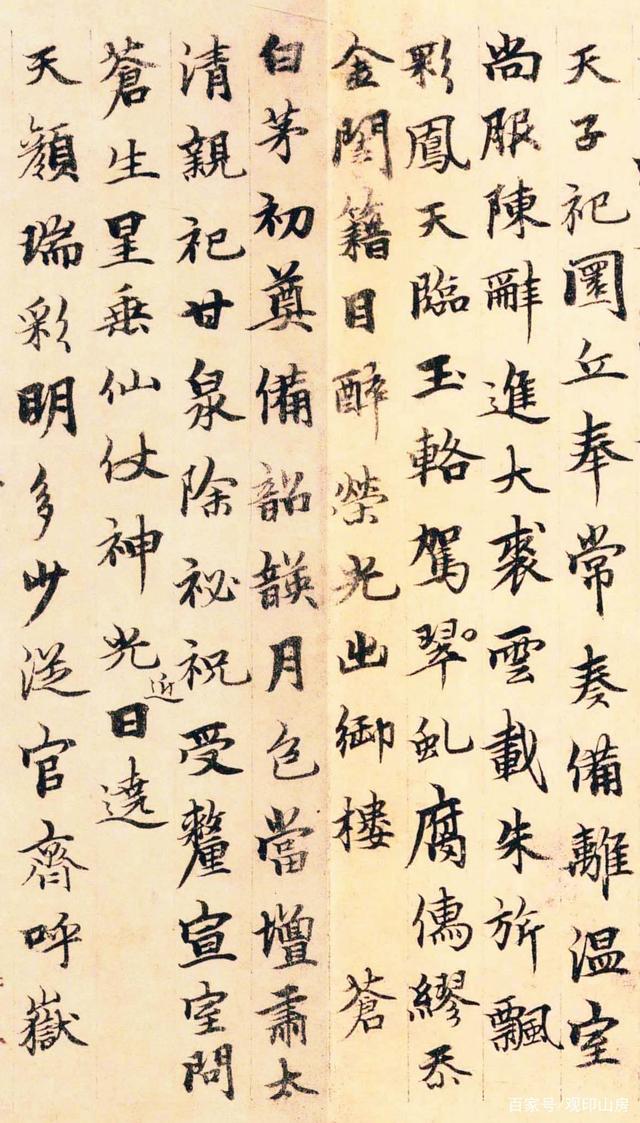 天子祀圜丘奉常奏備離温室
尚服陳辭進大裘雲載朱旂飄
彩鳳天臨玉輅駕翠虬腐儒繆忝
金閨籍目醉榮光出御樓 蒼
白茅初奠備韶韺月色當壇肅太
清親祀甘泉除祕祝受釐宣室問
蒼生星垂仙仗神光近日遶
天顏瑞彩明多少從官齊呼嶽
百家号/观印山房